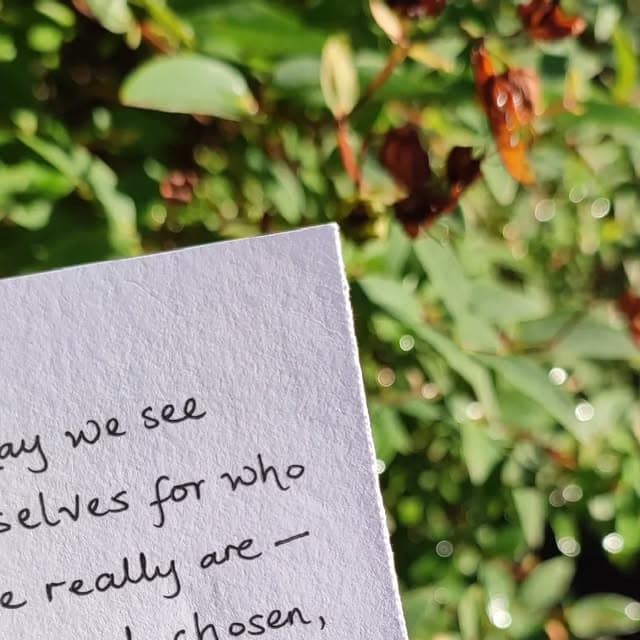 ay we see
selves for who
e really are –
chosen,